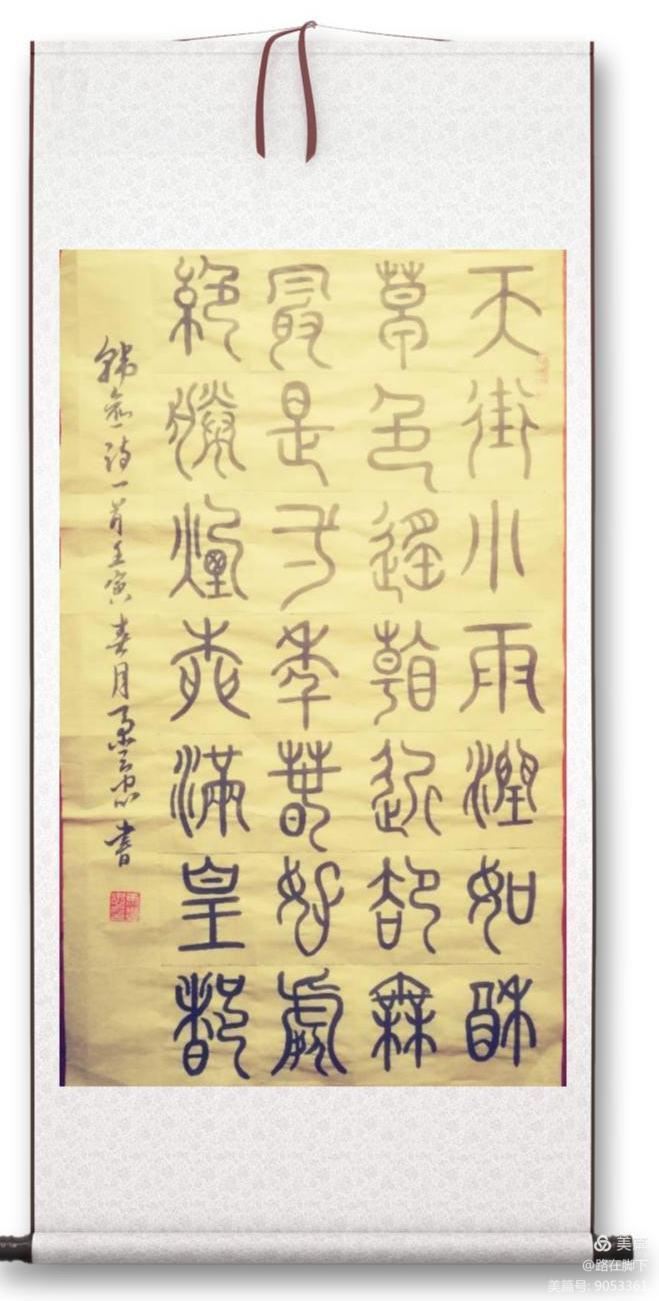 天街小雨潤如酥
草色遙看近卻無
最是一年春好處
絕勝煙柳滿皇都
韩愈诗一首壬寅春月書
美篇
@路在脚下
美篇号: 9053361